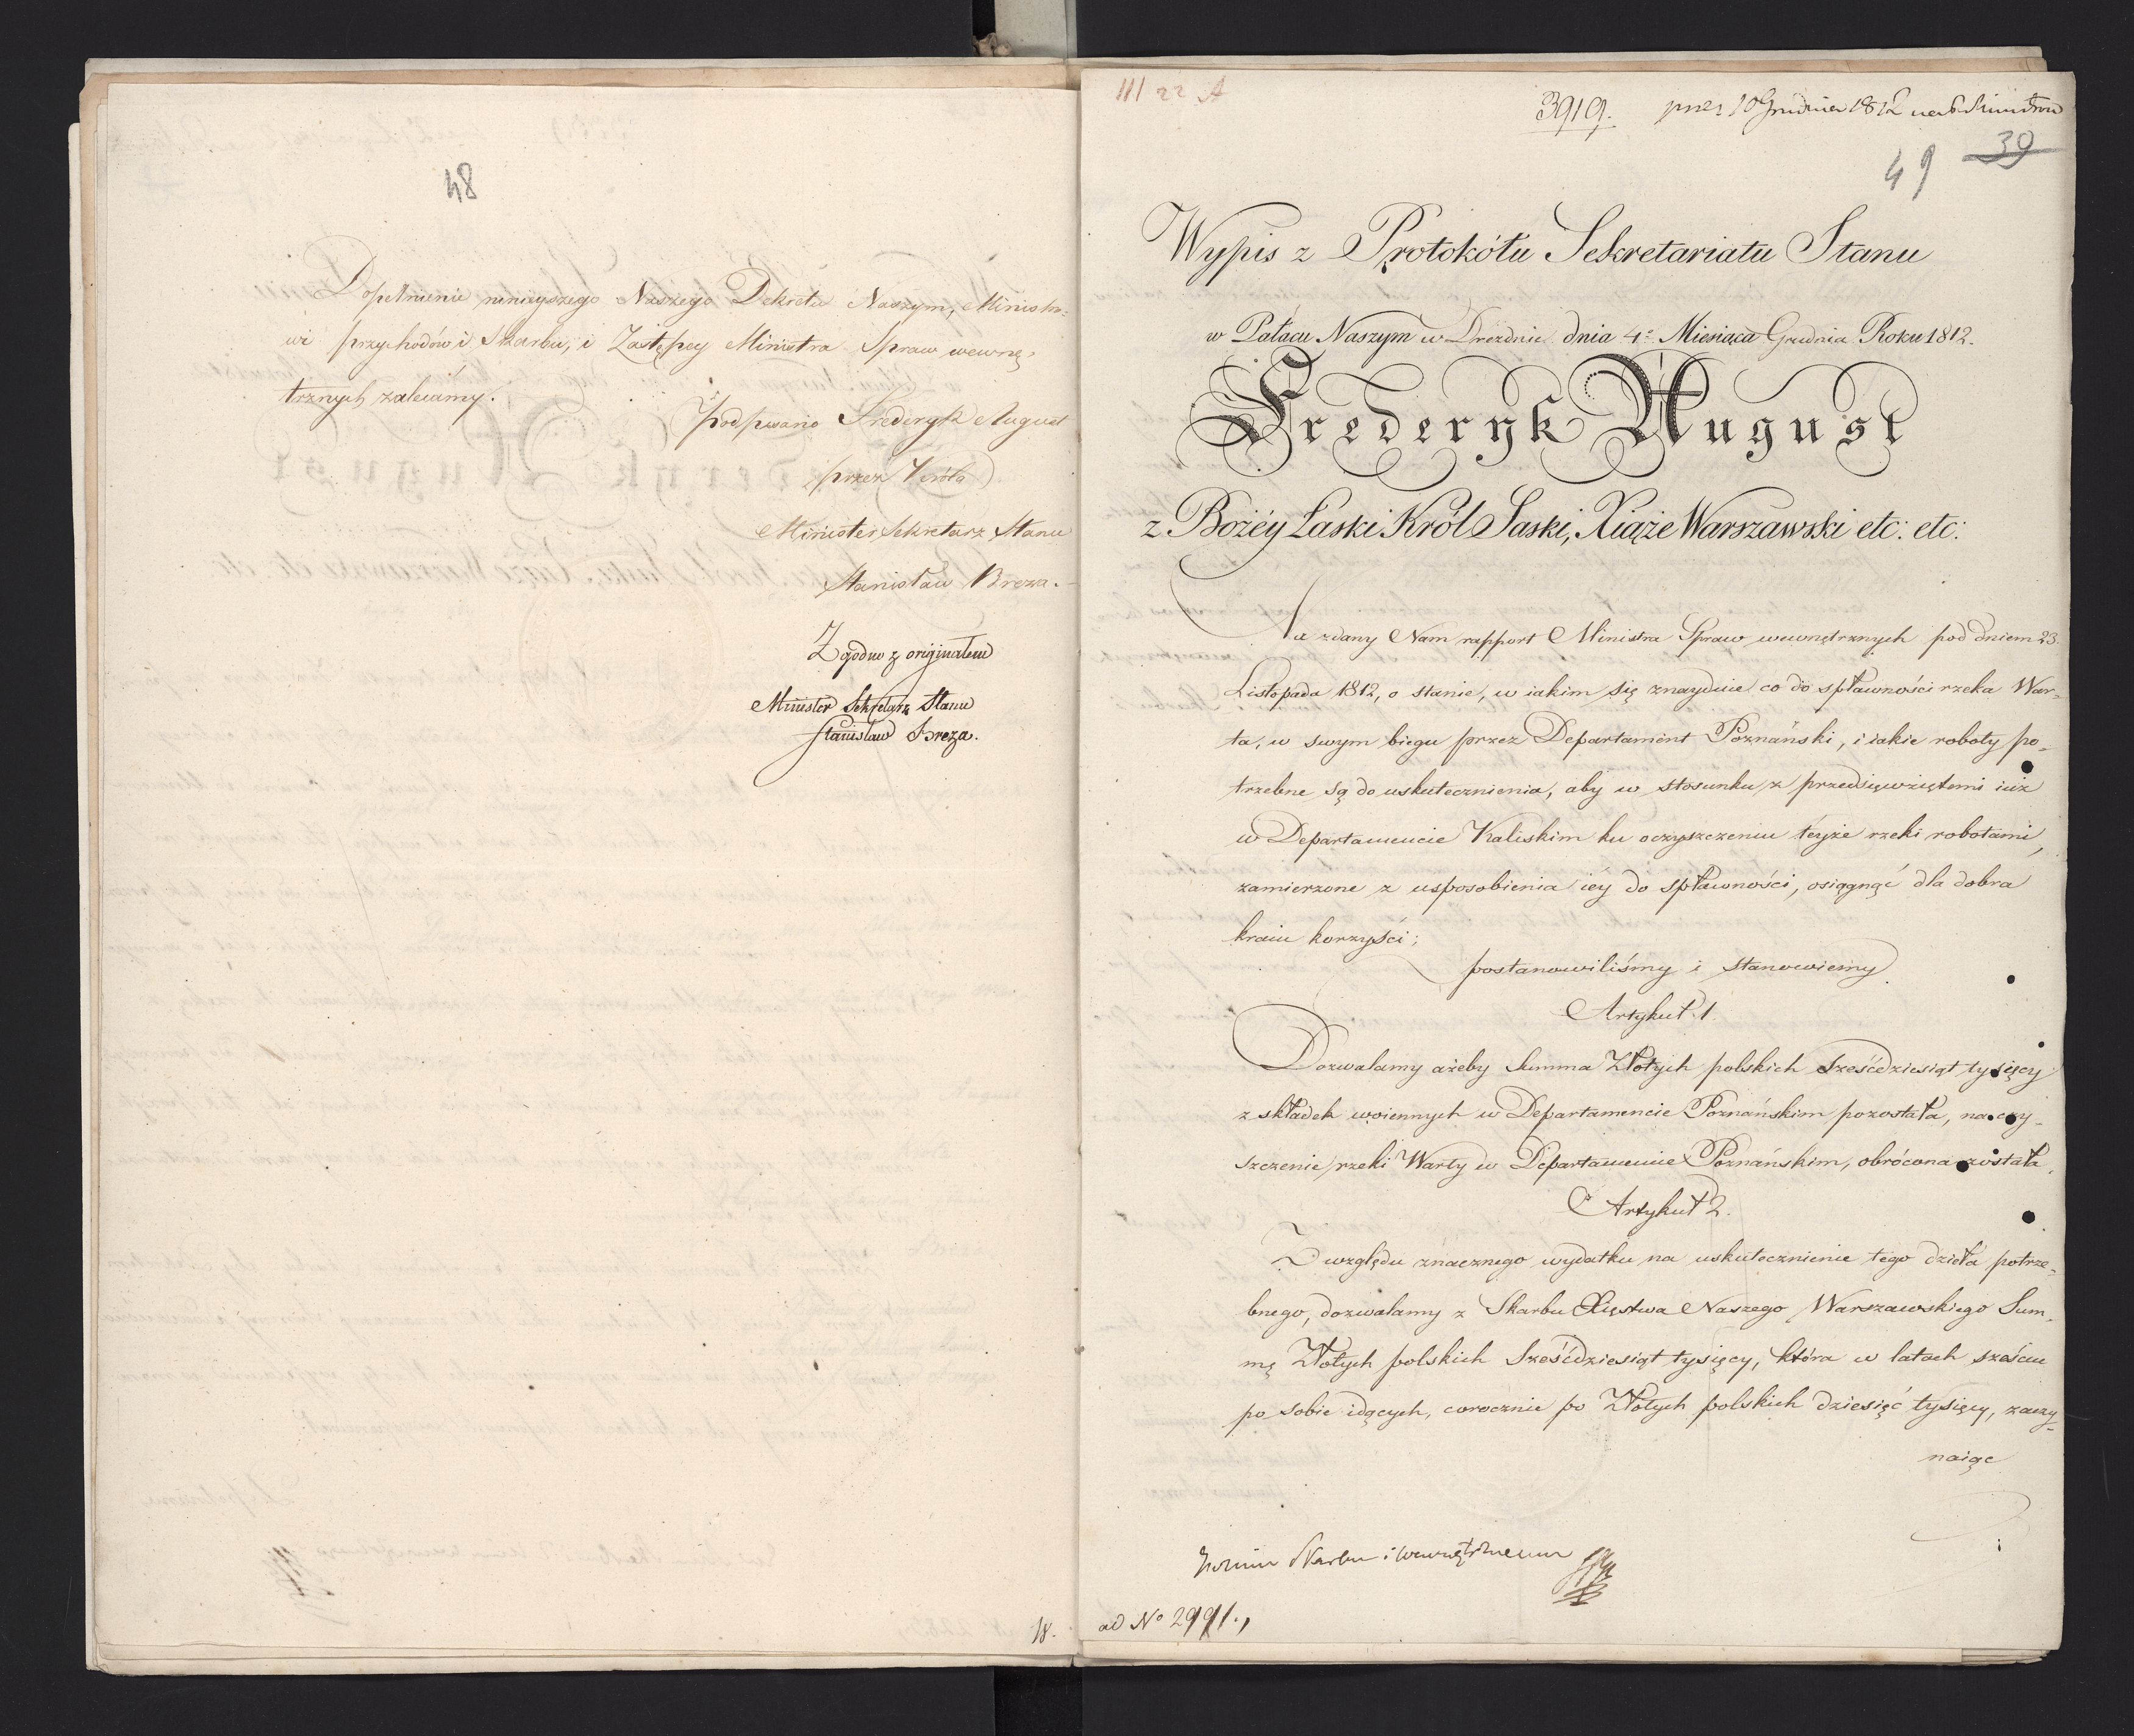 48
Dopełnienie ninieyszego Naszego Dekretu Naszym, Ministro-
wi przychodów i Skarbu, i Zastępcy Ministra Spraw wewnę-
trznych zalecamy.
podpisano Frederyk August
przez Króla
Minister Sekretarz Stanu
Stanisław Breza.
Zgodno z originałem
Minister Sekretarz Stanu
Stanisław Breza.
18.
III 22 A
3919. 10 Grudnia 1812
49 39
Wypis z Protokółu Sekretariatu Stanu
w Pałacu Naszym w Dreznie dnia 4º Miesiąca Grudnia Roku 1812.
Frederyk August
z Bożéy Łaski Król Saski, Xiąże Warszawski etc: etc:
Na zdany Nam rapport Ministra Spraw wewnętrznych pod dniem 23.
Listopada 1812, o stanie, w iakim się znayduie co do spławności rzeka War-
ta, w swym biegu przez Departament Poznański, i iakie roboty po-
trzebne są do uskutecznienia, aby w stosunku z przedsięwziętemi iuż
w Departamencie Kaliskim ku oczyszczeniu téyże rzeki robotami,
zamierzone z usposobienia iéy do spławności, osiągnąć dla dobra
kraiu korzyści;
postanowiliśmy i stanowiemy.
Artykuł 1.
Dozwalamy ażeby Summa Złotych polskich sześćdziesiąt tysięcy
z składek woiennych w Departamencie Poznańskim pozostała, na czy-
szczenie rzeki Warty w Departamencie Poznańskim, obrócona została.
Artykuł 2.
Z względu znacznego wydatku na uskutecznienie tego dzieła potrze-
bnego, dozwalamy z Skarbu Xięstwa Naszego Warszawskiego Sum-
mę Złotych polskich Sześćdziesiąt tysięcy, która w latach sześciu
po sobie idących, corocznie po Złotych polskich dziesięć tysięcy, zaczy-
naiąc
Skarbu i wewnętrznemu
ad Nº 2991.,